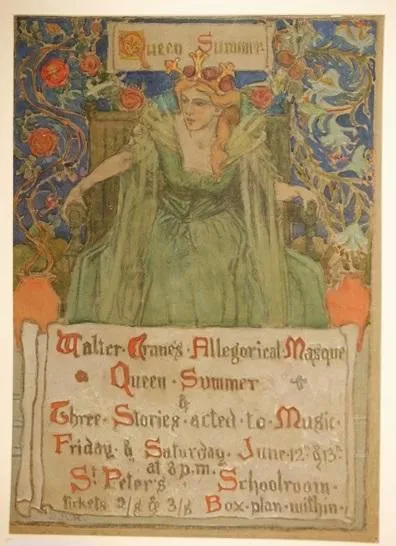 Queen Summer
Walter · Crane's · Allegorical · Masque
Queen · Summer
&
Three · Stories · acted · to · Music ·
Friday · & Saturday · June · 12th & 13th
at 8 p.m.
St Peter's · Schoolroom ·
Tickets 2/6 & 3/6 Box · plan · within ·